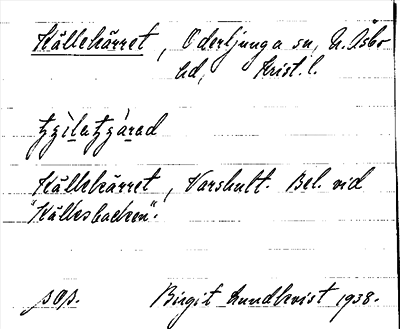 Källekärret, Oderljunga sn, N. Åsbo
hd, Krist. l.
Källekärret, Varshult. Bel. vid
"Källesbacken".
sop. Birgit Lundkvist 1938.